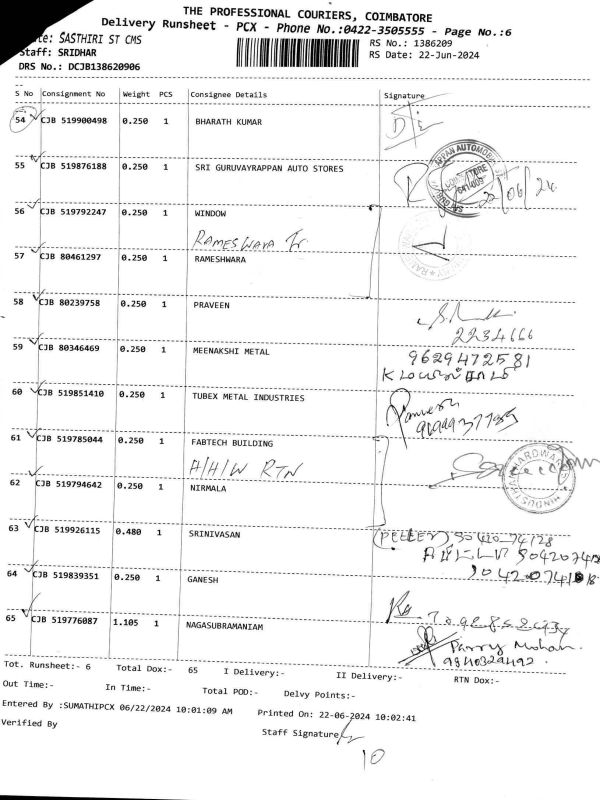 THE PROFESSIONAL COURIERS, COIMBATORE
Delivery Runsheet - PCX - Phone No.:0422-3505555 - Page No.:6
te: SASTHIRI ST CMS
RS No.: 1386209
Staff: SRIDHAR
RS Date: 22-Jun-2024
DRS No.: DCJB138620906
S No Consignment No Weight PCS Consignee Details Signature
54 CJB 519900498 0.250 1 BHARATH KUMAR
55 CJB 519876188 0.250 1 SRI GURUVAYRAPPAN AUTO STORES
22/06/24
56 CJB 519792247 0.250 1 WINDOW
RAMESWARA
57 CJB 80461297 0.250 1 RAMESHWARA
58 CJB 80239758 0.250 1 PRAVEEN
2234666
59 CJB 80346469 0.250 1 MEENAKSHI METAL
9629472581
60 CJB 519851410 0.250 1 TUBEX METAL INDUSTRIES
61 CJB 519785044 0.250 1 FABTECH BUILDING
H/H/W RTN
HARDWARE
HINDUSTHAN
62 CJB 519794642 0.250 1 NIRMALA
63 CJB 519926115 0.480 1 SRINIVASAN
64 CJB 519839351 0.250 1 GANESH
65 CJB 519776087 1.105 1 NAGASUBRAMANIAM
Parry Mohan
9840329492
Tot. Runsheet:- 6 Total Dox:- 65 I Delivery:- II Delivery:- RTN Dox:-
Out Time:- In Time:- Total POD:- Delvy Points:-
Entered By :SUMATHIPCX 06/22/2024 10:01:09 AM Printed On: 22-06-2024 10:02:41
Verified By Staff Signature
10